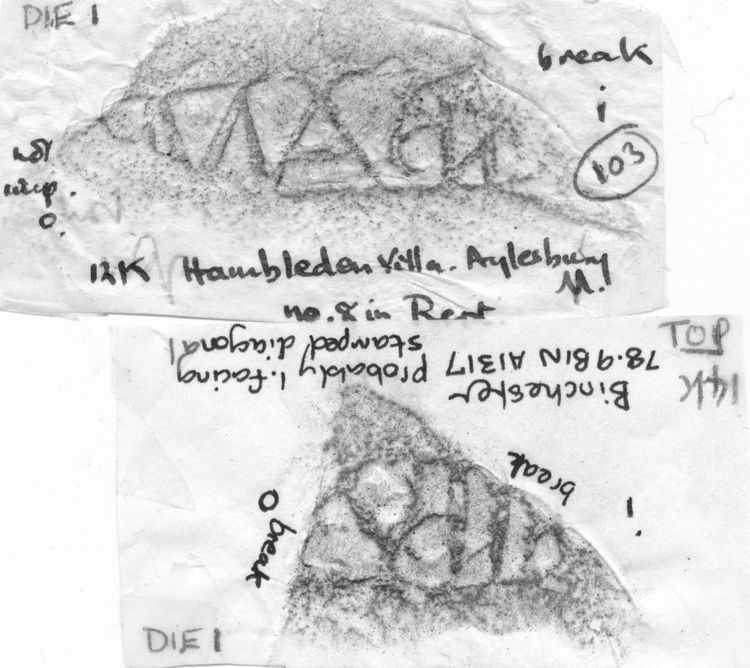 DIE 1
break
i
103
not
imp.
o.
12K Hambledon Villa. Aylesbury
M.
no. 8 in Rest
TOP
14K
Binchester
78.9 BIN A1317 probably l. facing
stamped diagonal
break
i.
o break
DIE 1